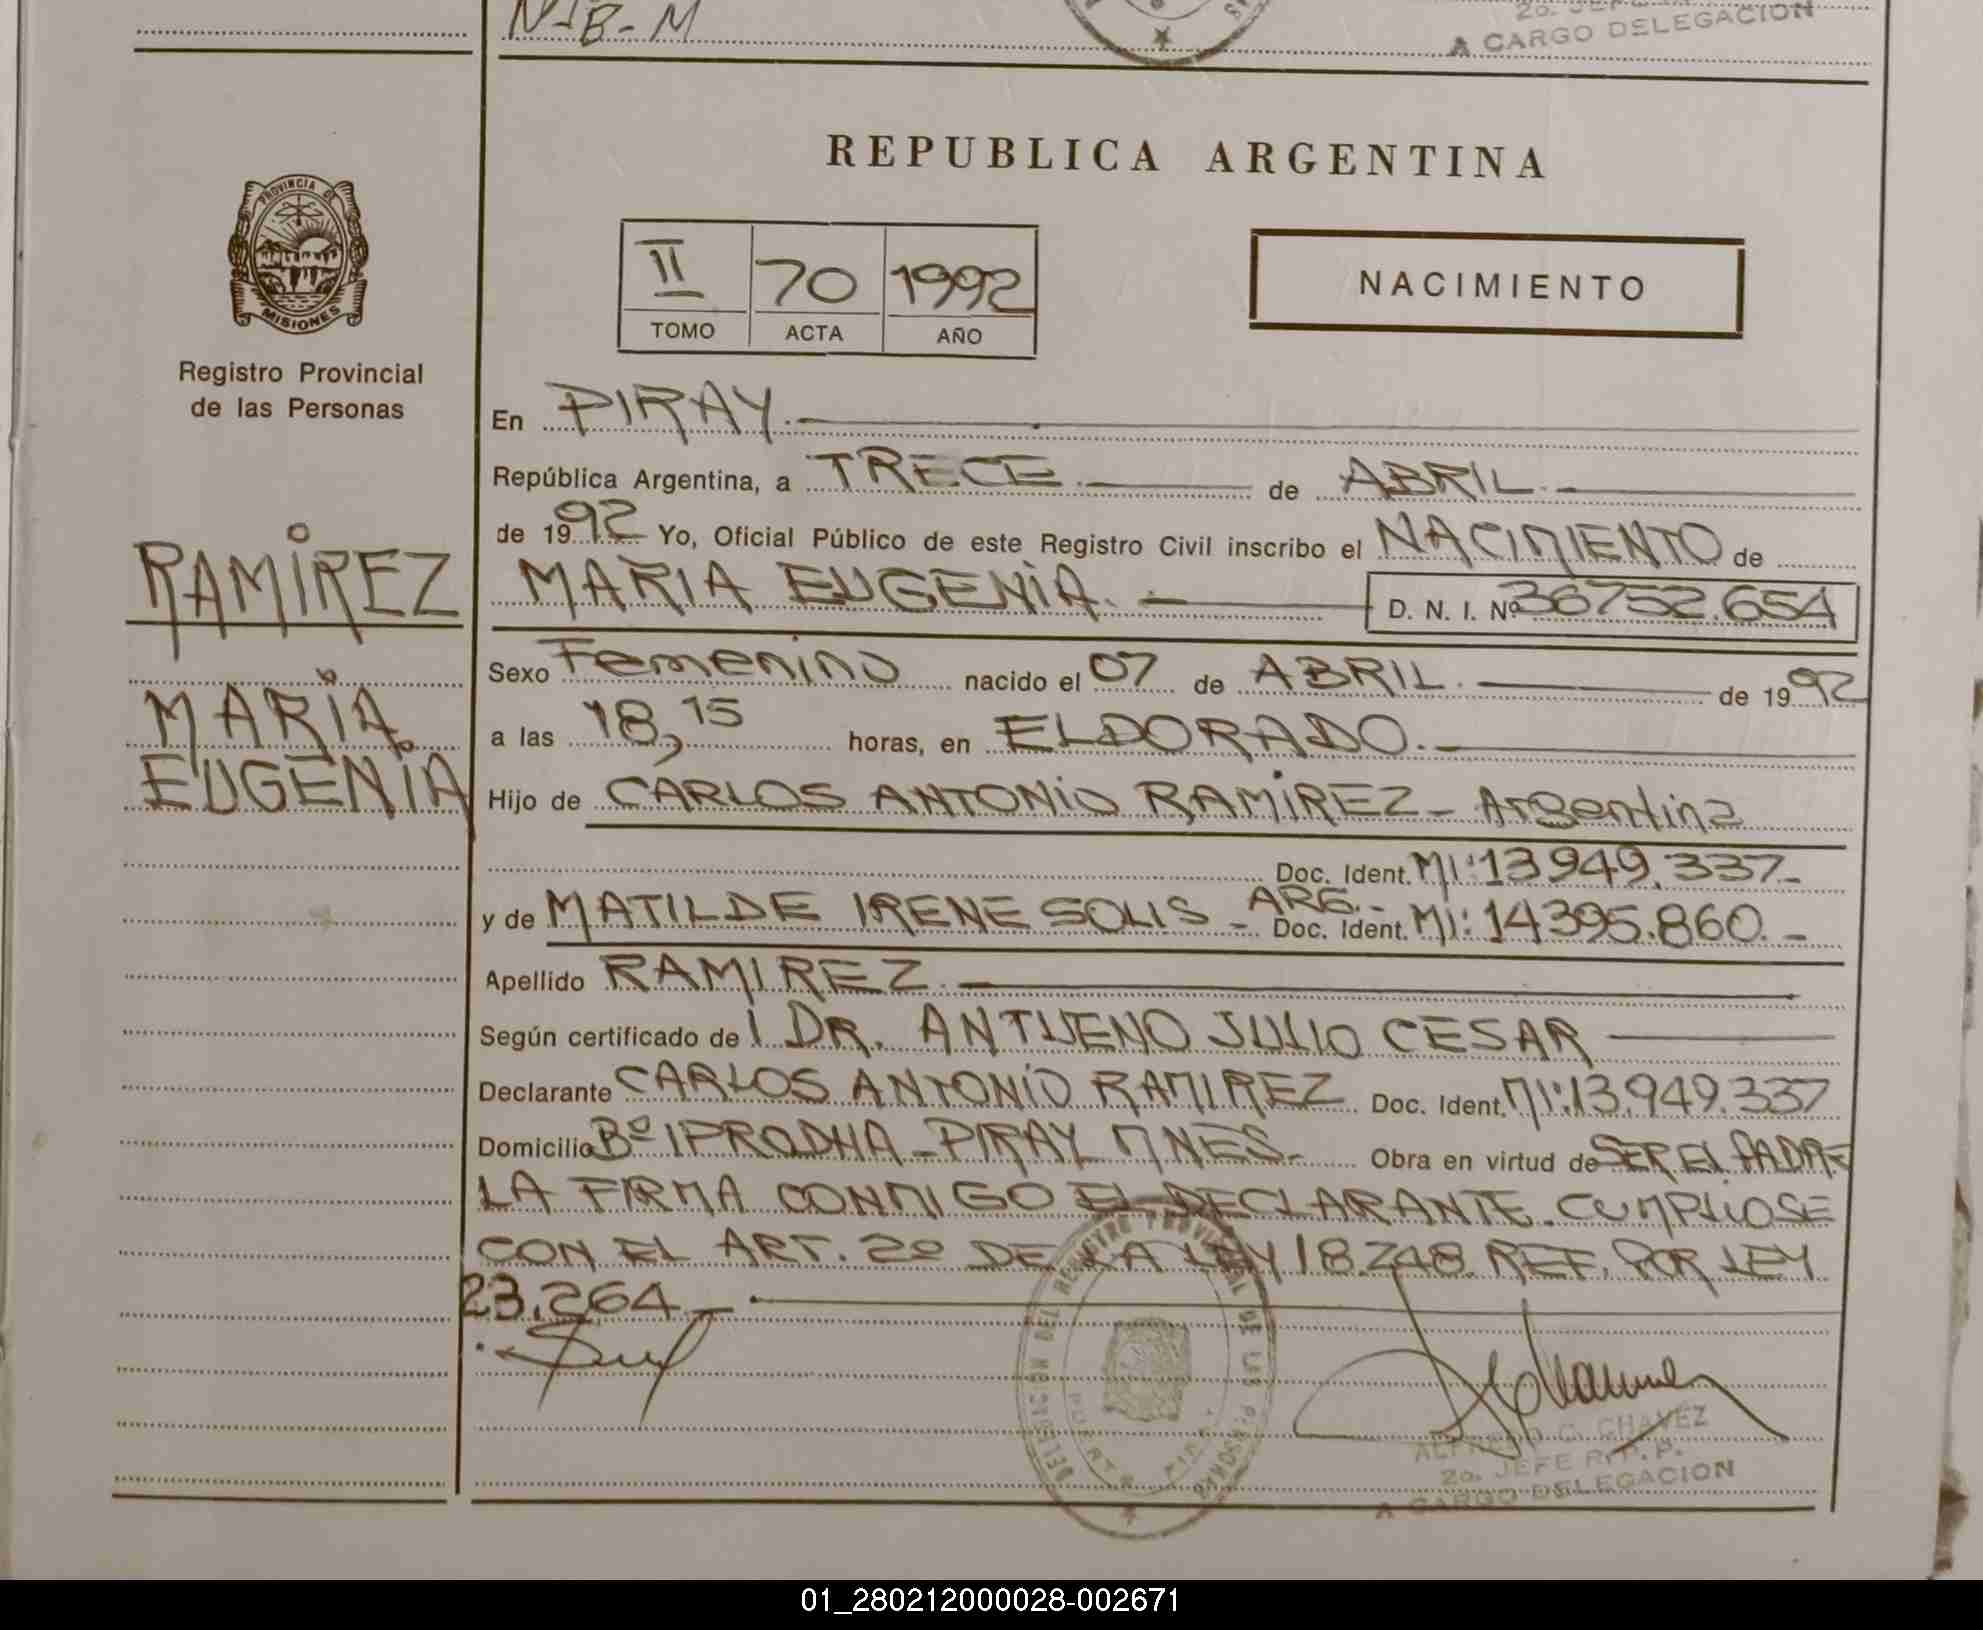 N-B-M
A CARGO DELEGACION
REPUBLICA ARGENTINA
PROVINCIA DE
MISIONES
Registro Provincial
de las Personas
II 70 1992
TOMO ACTA AÑO
NACIMIENTO
En PIRAY.
República Argentina, a TRECE. de ABRIL.
de 1992 Yo, Oficial Público de este Registro Civil inscribo el NACIMIENTO de
RAMIREZ
MARIA EUGENIA. D. N. I. Nº 36752.654
Sexo Femenino nacido el 07 de ABRIL. de 1992
MARIA
a las 18,15 horas, en ELDORADO.
EUGENIA
Hijo de CARLOS ANTONIO RAMIREZ - Argentina
Doc. Ident. MI:13949.337.-
y de MATILDE IRENE SOLIS - ARG.- Doc. Ident. MI: 14395.860.-
Apellido RAMIREZ.
Según certificado del DR. ANTUENO JULIO CESAR
Declarante CARLOS ANTONIO RAMIREZ Doc. Ident. MI:13.949.337
Domicilio Bº IPRODHA - PIRAY MNES. Obra en virtud de SER EL PADRE
LA FIRMA CONMIGO EL DECLARANTE. CUMPLIOSE
CON EL ART. 2º DE LA LEY 18.248. REF. POR LEY
23.264.-
DELEGACION DEL REGISTRO PROVINCIAL DE LAS PERSONAS
ALFREDO C. CHAVEZ
2o. JEFE R.P.P.
A CARGO DELEGACION
01_280212000028-002671